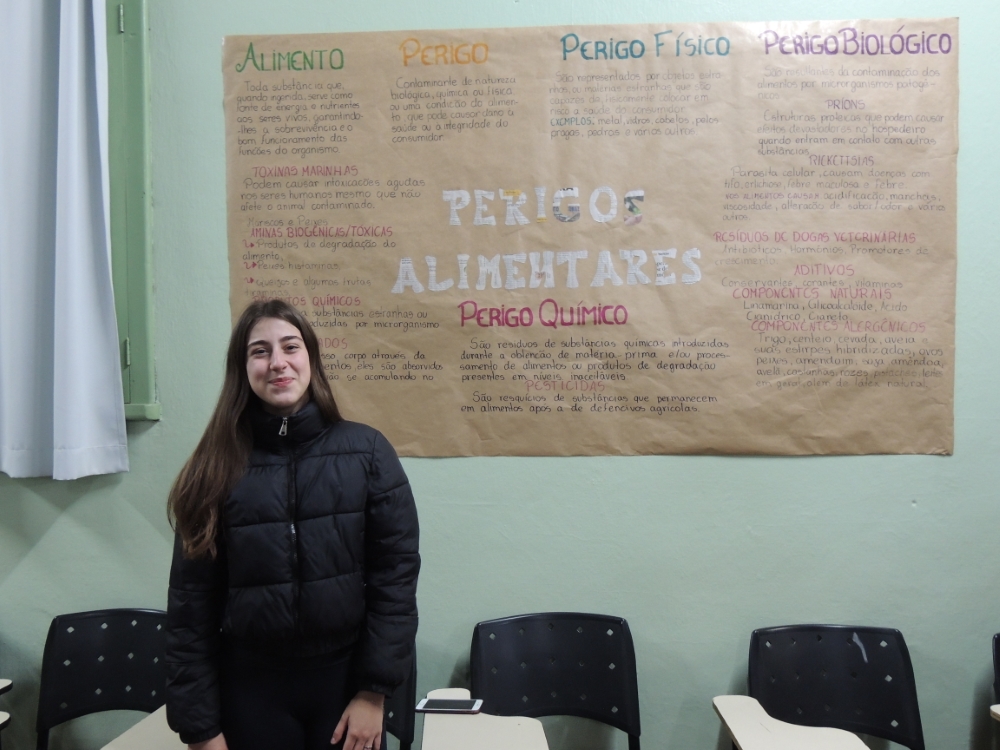 ALIMENTO
Toda substância que,
quando ingerida, serve como
fonte de energia e nutrientes
aos seres vivos, garantindo-
lhes a sobrevivência e o
bom funcionamento das
funções do organismo.
TOXINAS MARINHAS
Podem causar intoxicações agudas
nos seres humanos mesmo que não
afete o animal contaminado.
Mariscos e Peixes
AMINAS BIOGÊNICAS/TÓXICAS
Produtos de degradação do
alimento,
Peixes histaminas
Queijos e algumas frutas
TOS QUÍMICOS
substâncias estranhas ou
duzidas por microrganismo
DOS
sso corpo através da
entos eles são absorvidos
ão se acumulando no
PERIGO
Contaminante de natureza
biológica, química ou física
ou uma condição do alimen-
to que pode causar dano a
saúde ou a integridade do
consumidor.
PERIGO FÍSICO
São representados por objetos estra-
nhos ou matérias estranhas que são
capazes de fisicamente colocar em
risco a saúde do consumidor.
EXEMPLOS: metal, vidros, cabelos, pelos
pragas, pedras e vários outros.
PERIGOS
ALIMENTARES
PERIGO QUÍMICO
São resíduos de substâncias químicas introduzidas
durante a obtenção de matéria-prima e/ou proces-
samento de alimentos ou produtos de degradação
presentes em níveis inaceitáveis.
PESTICIDAS
São resquícios de substâncias que permanecem
em alimentos após a de defensivos agrícolas.
PERIGO BIOLÓGICO
São resultantes da contaminação dos
alimentos por microrganismos patogê-
nicos.
PRÍONS
Estruturas proteicas que podem causar
efeitos devastadores no hospedeiro
quando entram em contato com outras
substâncias.
RICKETTSIAS
Parasita celular, causam doenças com
tifo, febre maculosa e febre
nos alimentos causam acidificação, manchas,
viscosidade, alteração de sabor/odor e vários
outros.
RESÍDUOS DE DOGAS VETERINÁRIAS
Antibióticos, Hormônios, Promotores de
crescimento.
ADITIVOS
Conservantes, corantes, vitaminas
COMPONENTES NATURAIS
Linamarina, Glicoalcaloide, Ácido
Cianídrico, Cianeto.
COMPONENTES ALERGÊNICOS
Trigo, centeio, cevada, aveia e
suas estirpes hibridizadas, ovos
peixes, amendoim, soja, amêndoa,
avelã, castanhas, nozes, leite
em geral, além do látex natural.